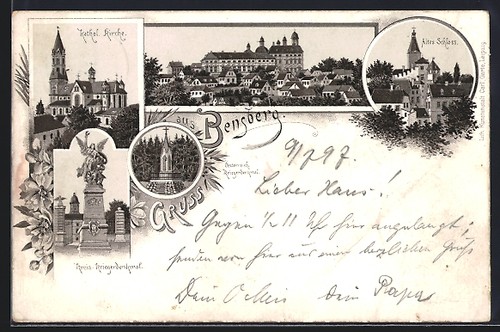 Kathol. Kirche.
Altes Schloss.
Gruss aus Bensberg.
Oesterreich. Kriegerdenkmal.
Kreis-Kriegerdenkmal.
9/7 97.
Lieber Hans!
Gegen ½ 11 Uhr hier angelangt,
senden wir hier aus einen herzlichen Gruß
Dein
dein Papa